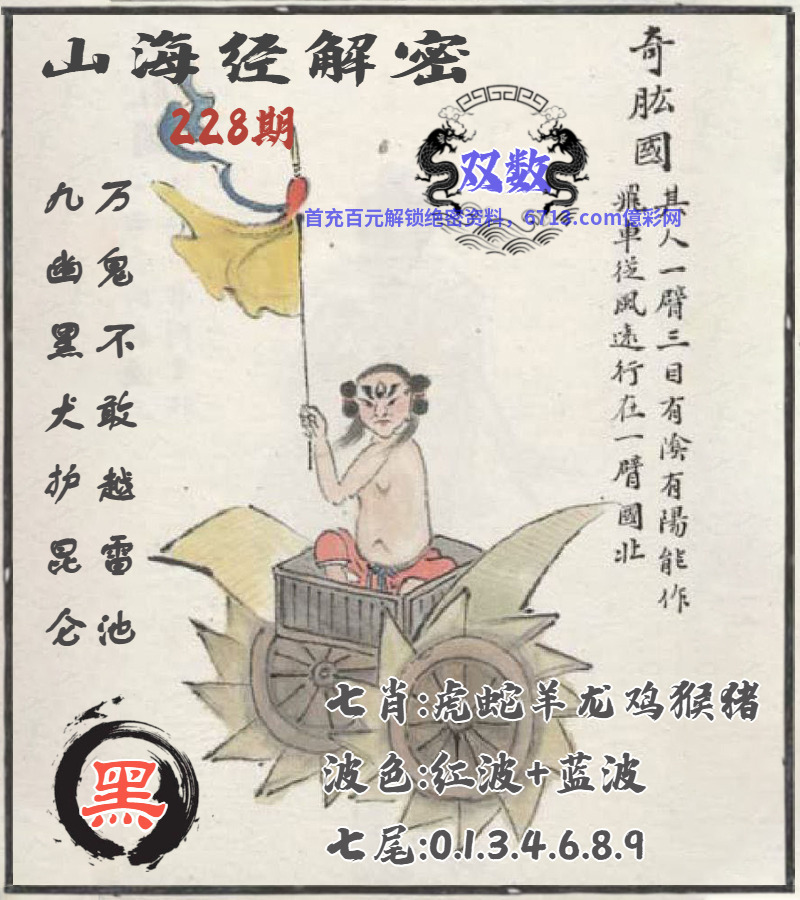 山海经解密
228期
双数
首充百元解锁绝密资料，6713.com億彩网
奇肱國
其人一臂三目有陰有陽能作
飛車從風遠行在一臂國北
万鬼不敢越雷池
九幽黑犬护昆仑
黑
七肖:虎蛇羊龙鸡猴猪
波色:红波+蓝波
七尾:0.1.3.4.6.8.9